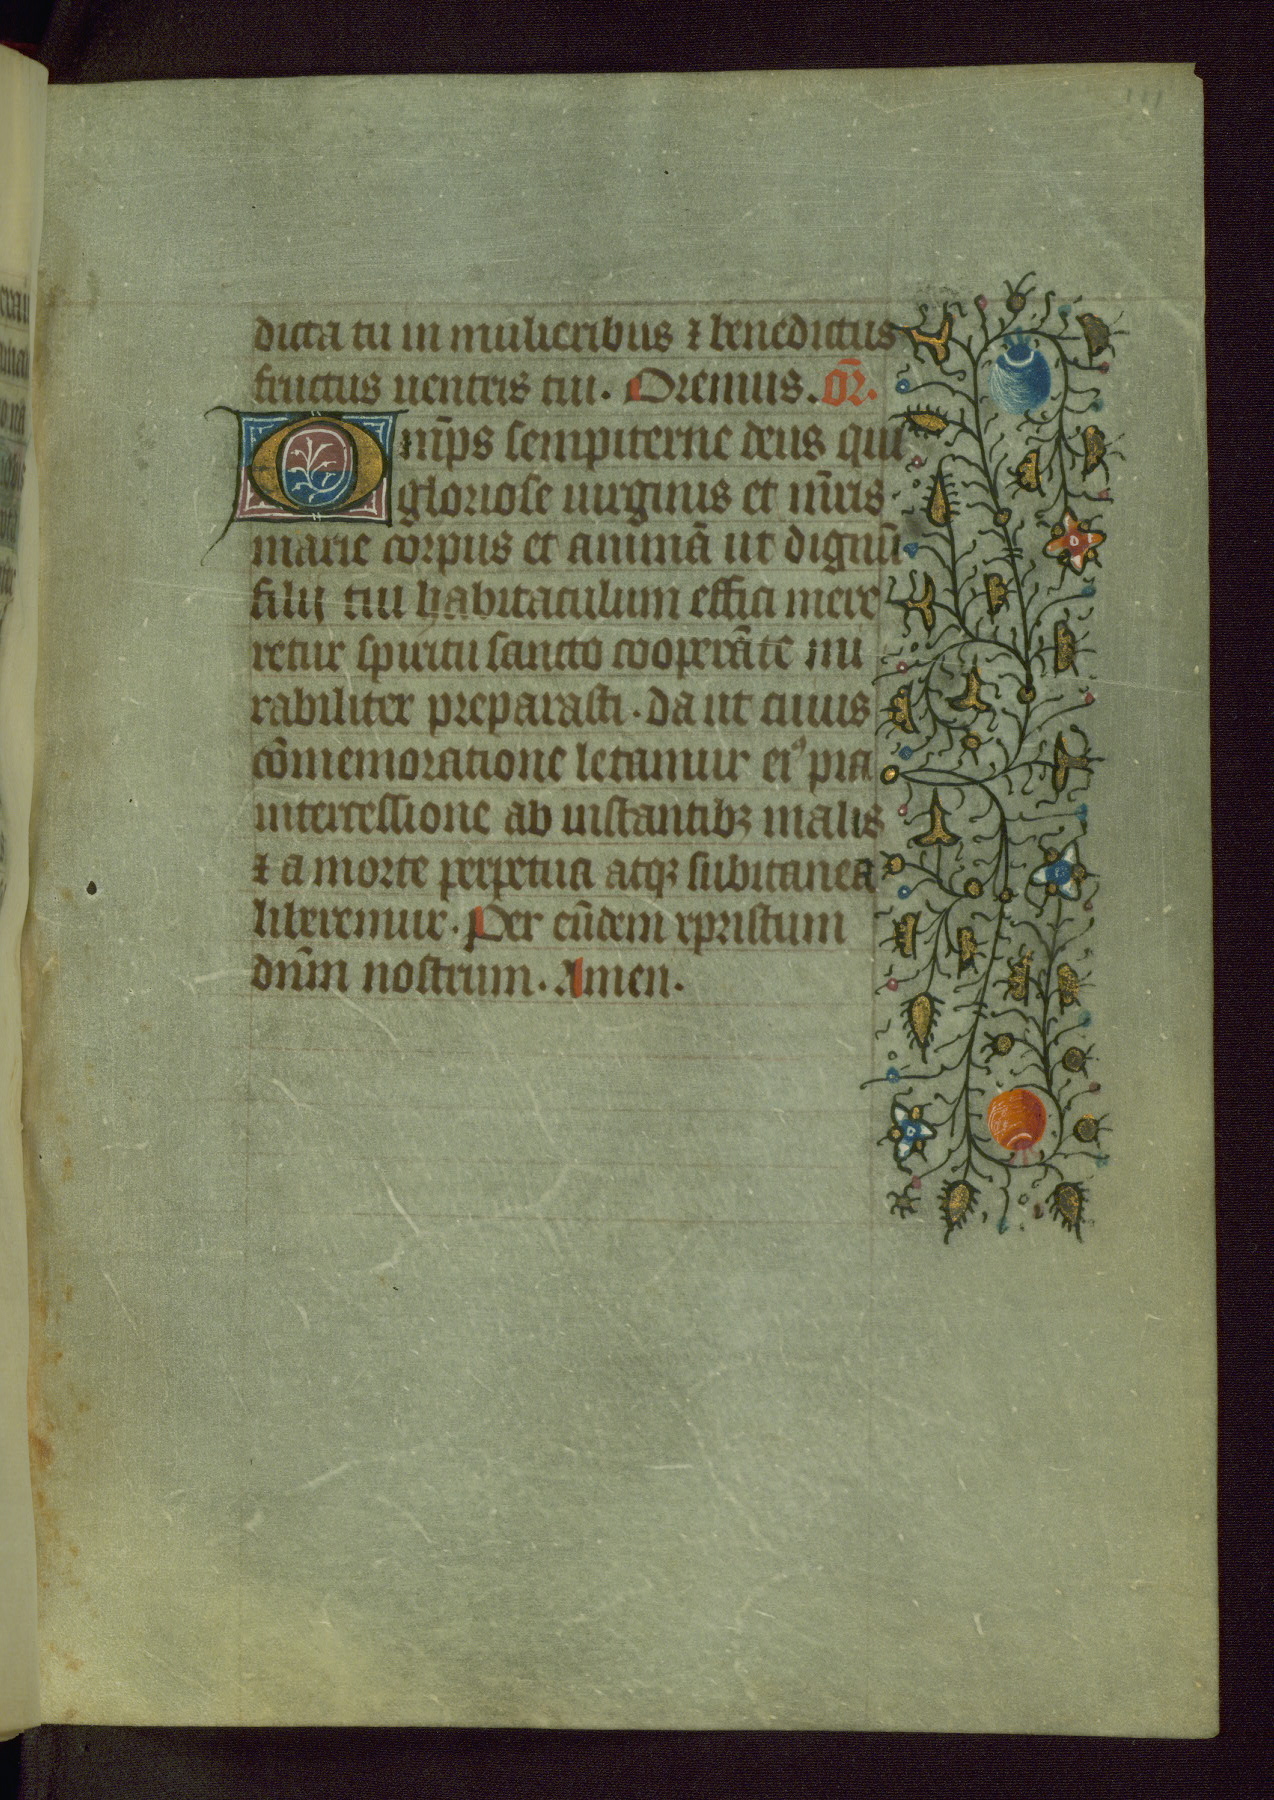 dicta tu in mulieribus ⁊ benedictus
fructus uentris tui. Oremus. or̄.
Om̄ps sempiterne deus qui
gloriose uirginis et mr̄is
marie corpus et animā ut dignū
filij tui habitaculum effici mere
retur spiritu sancto cooperāte mi
rabiliter preparasti. da ut cuius
cōmemoratione letamur eiꝰ pia
intercessione ab instantibꝫ malis
⁊ a morte perpetua atqꝫ subitanea
liberemur. Per eūdem xpristum
dn̄m nostrum. Amen.